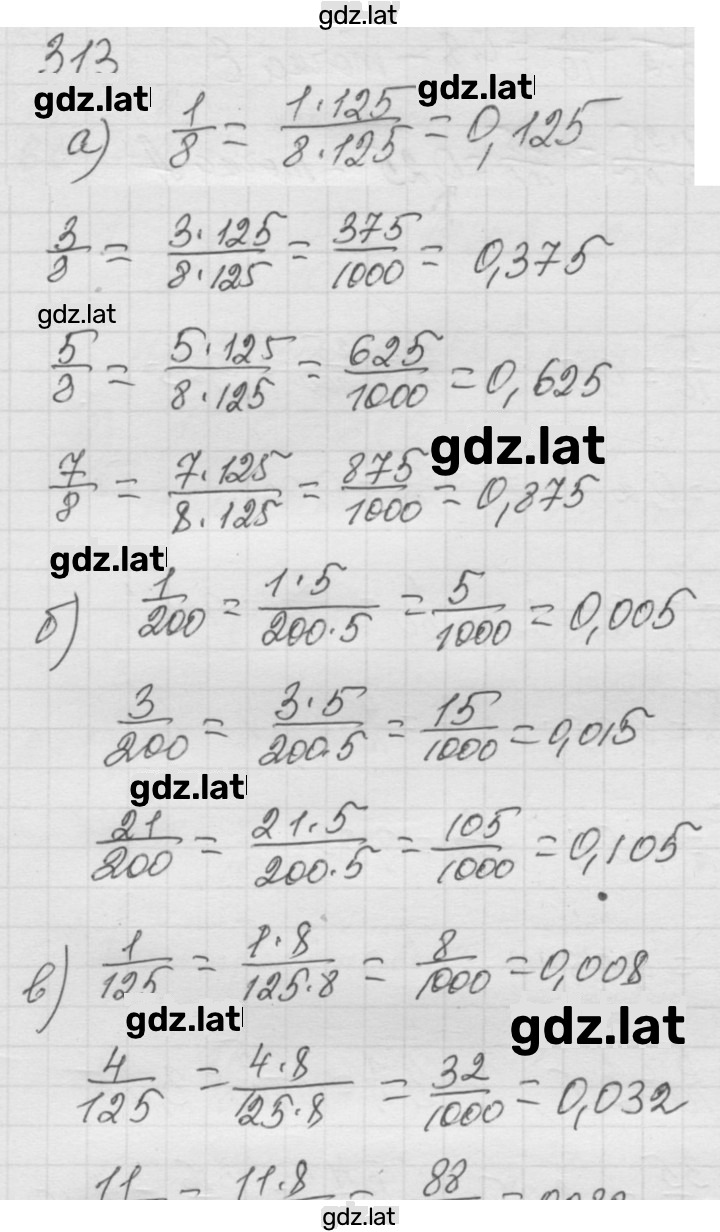 gdz.lat
313
gdz.lat gdz.lat
а) 1/8 = 1·125/8·125 = 0,125
3/8 = 3·125/8·125 = 375/1000 = 0,375
gdz.lat
5/8 = 5·125/8·125 = 625/1000 = 0,625
gdz.lat
7/8 = 7·125/8·125 = 875/1000 = 0,875
gdz.lat
б) 1/200 = 1·5/200·5 = 5/1000 = 0,005
3/200 = 3·5/200·5 = 15/1000 = 0,015
gdz.lat
21/200 = 21·5/200·5 = 105/1000 = 0,105
в) 1/125 = 1·8/125·8 = 8/1000 = 0,008
gdz.lat gdz.lat
4/125 = 4·8/125·8 = 32/1000 = 0,032
11 = 11·8 = 88 =
gdz.lat